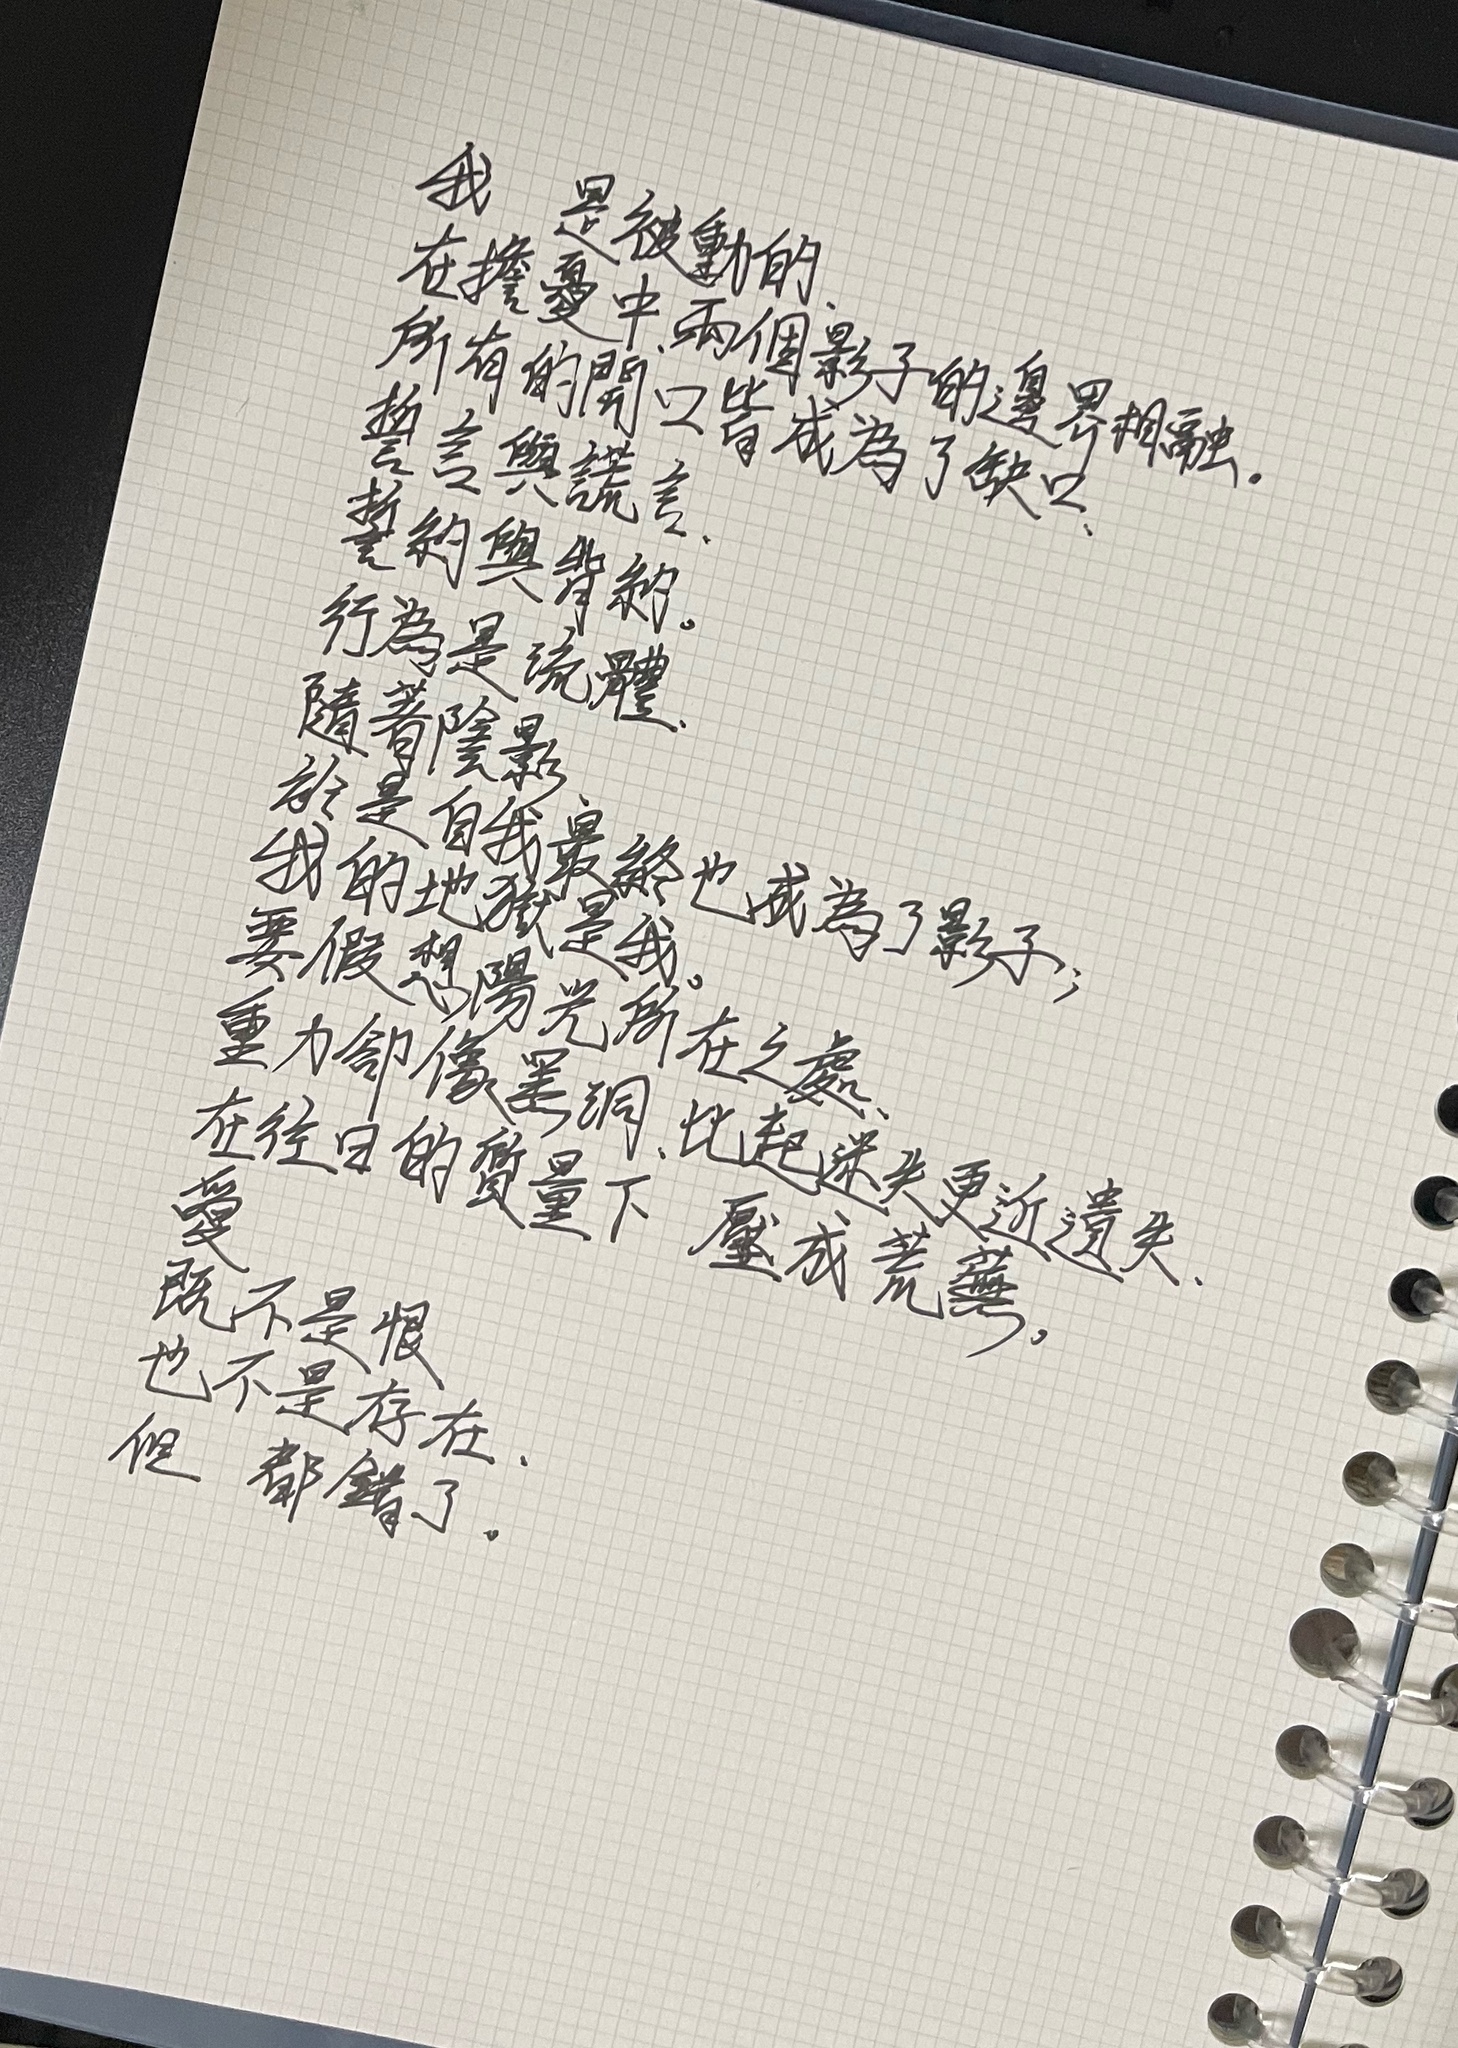 我　是被動的、
在擔憂中、兩個影子的邊界相融。
所有的開口皆成為了缺口、
誓言與謊言、
誓約與背約。
行為是流體、
隨著陰影、
於是自我最終也成為了影子；
我的地獄是我。
要假想陽光所在之處、
重力卻像黑洞、比起迷失更近遺失、
在往日的質量下　壓成荒蕪。
愛
既不是恨
也不是存在、
但　都錯了。